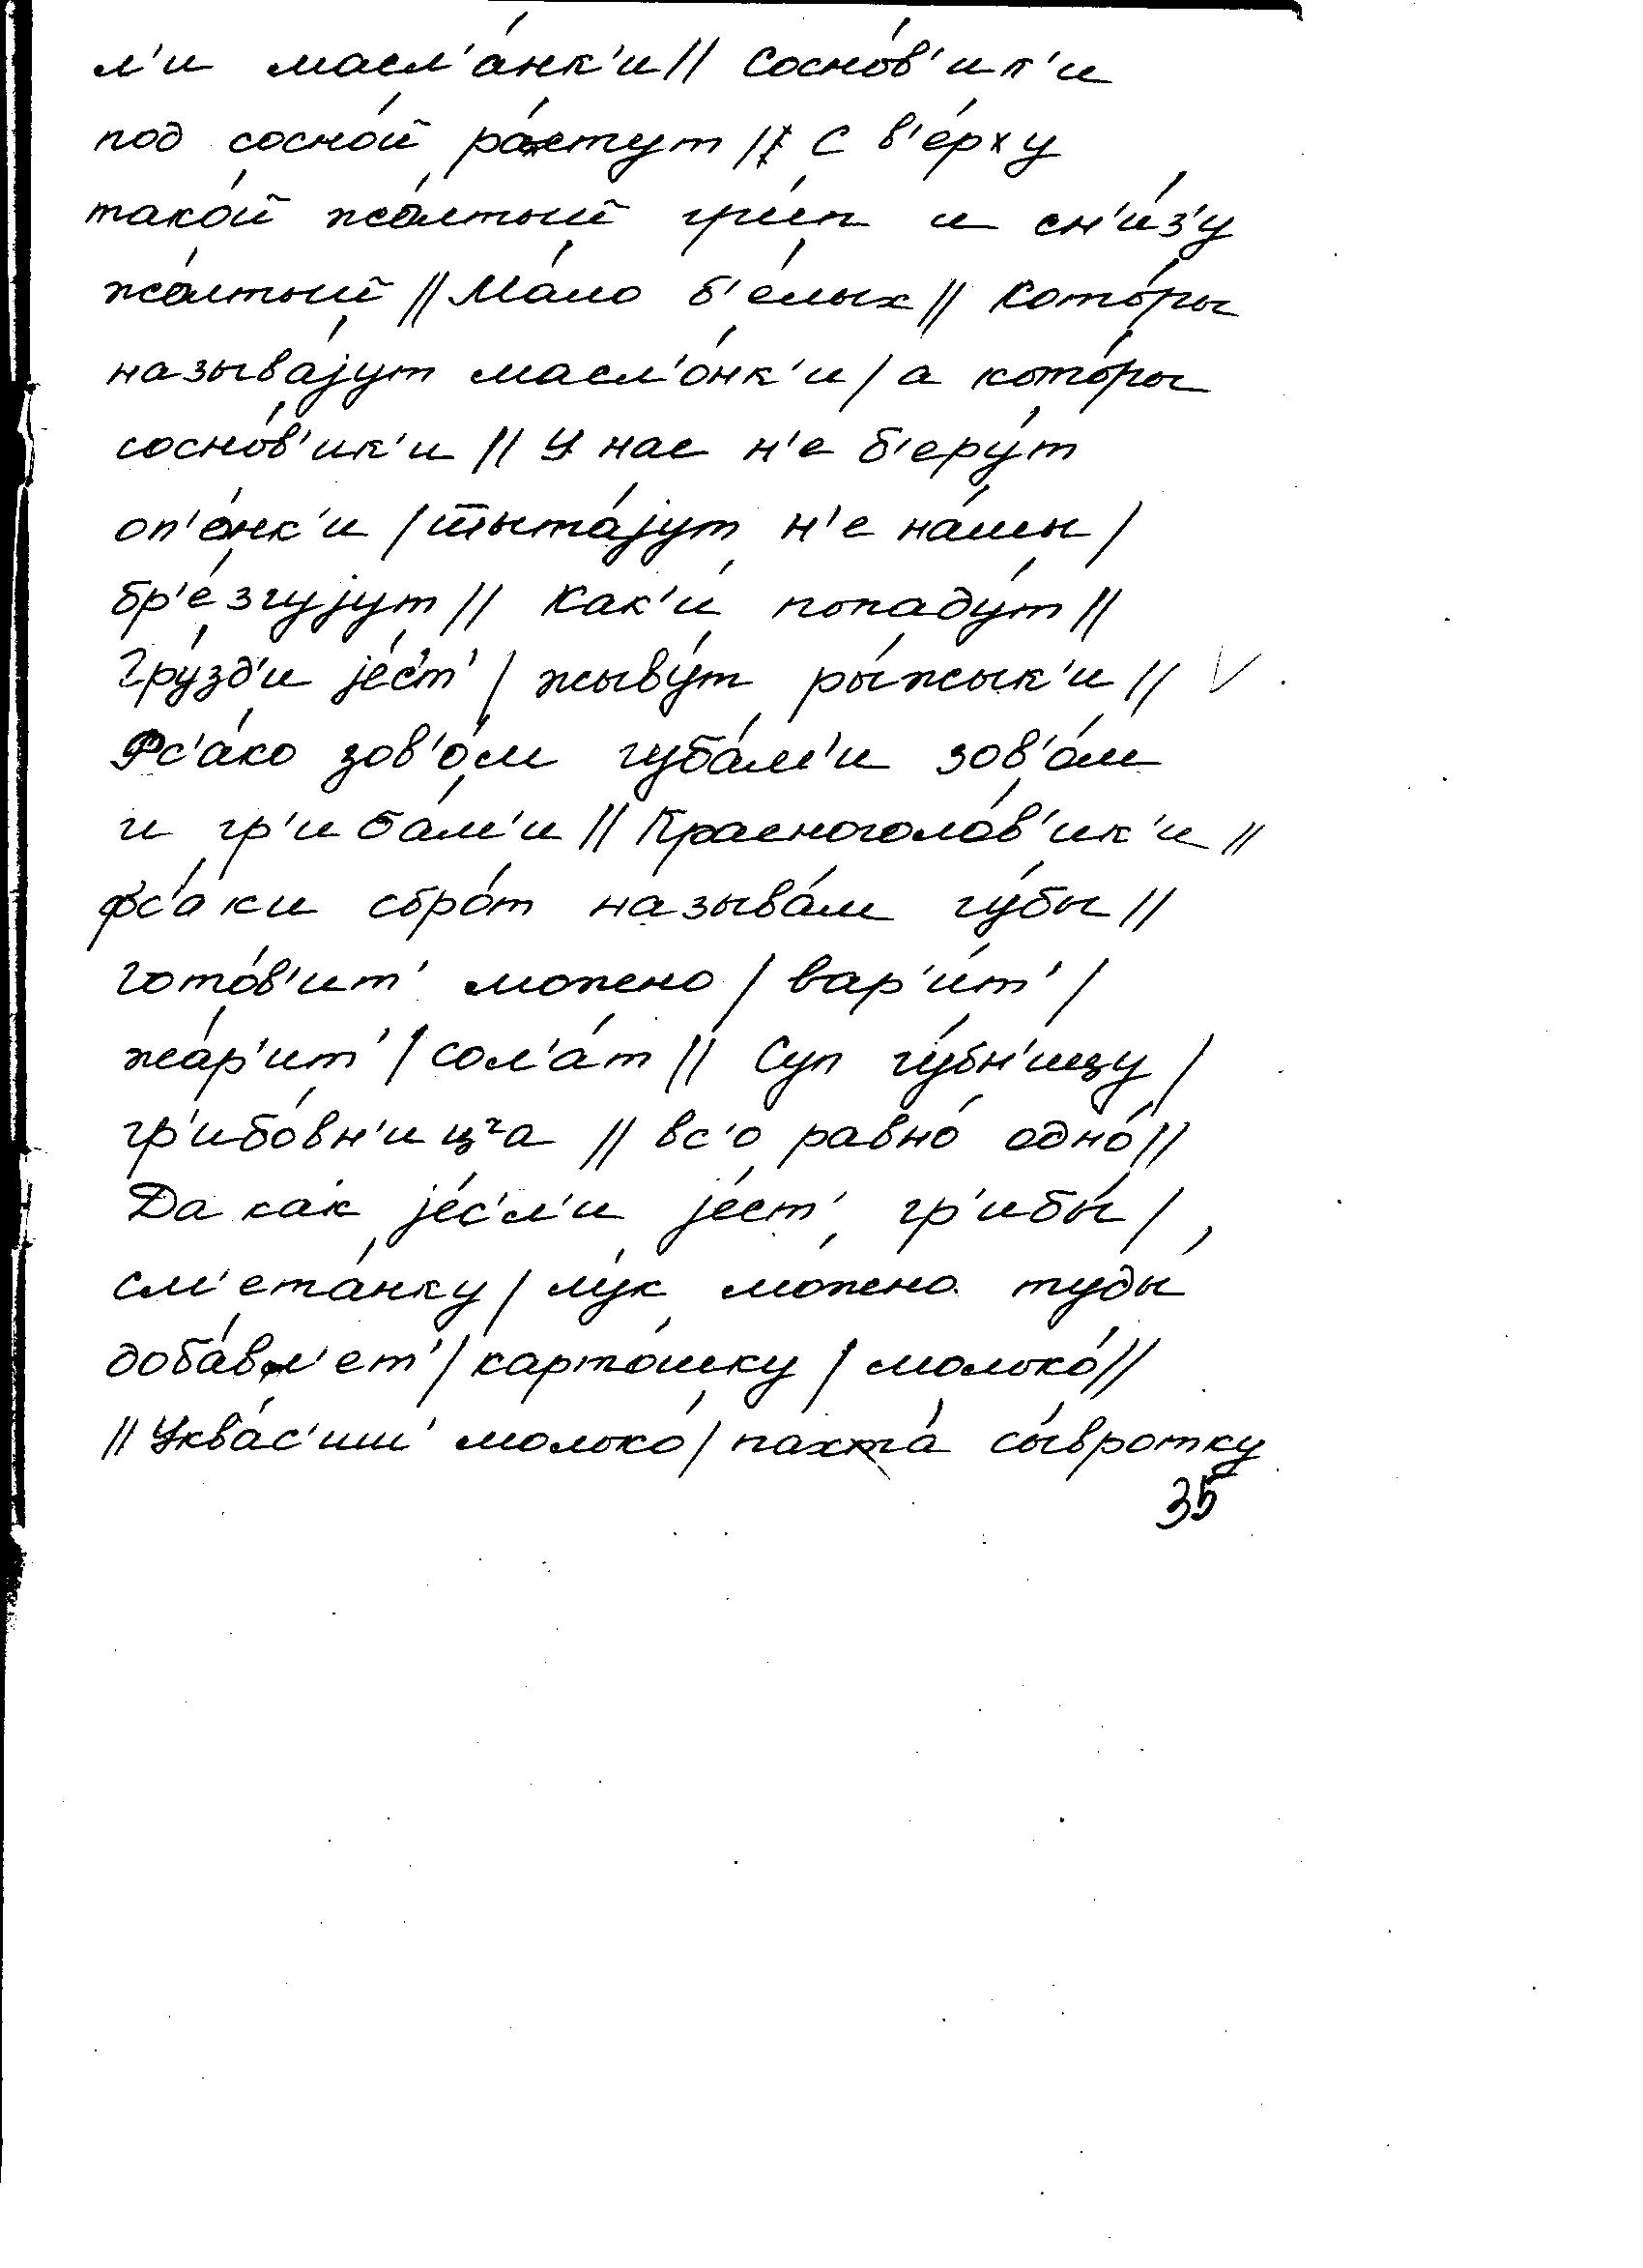 л'и масл'а́нк'и // Сосно́в'ик'и
под сосно́й ра́стут // С в'е́рху
тако́й жо́лтый гри́п и сн'и́з'у
жо́лтый // Ма́ло б'е́лых // Кото́ры
называ́jут масл'о́нк'и / а кото́ры
сосно́в'ик'и // У нас н'е б'еру́т
оп'о́нк'и / шыта́jут н'е на́шы /
бр'е́згуjут // Как'и́ попаду́т //
Гру́зд'и jе́с'т' / жыву́т ры́жык'и // V
Фс'а́ко зов'о́м губа́м'и зов'о́м
и гр'иба́м'и // Красноголо́в'ик'и //
фс'а́ки сбро́т называ́м гу́бы //
Гото́в'ит' можно / вар'и́т' /
жа́р'ит' / сол'а́т // Суп гу́бн'ицу /
гр'ибо́вн'ицча // вс'о равно́ одно́ //
Да ка́к jе́с'л'и jе́ст' гр'ибы́ /
см'ета́нку / лу́к мо́жно туды́
доба́вл'ет' / карто́шку / молоко́ //
// Уква́с'иш' молоко́ / пахта́ сы́вротку
35